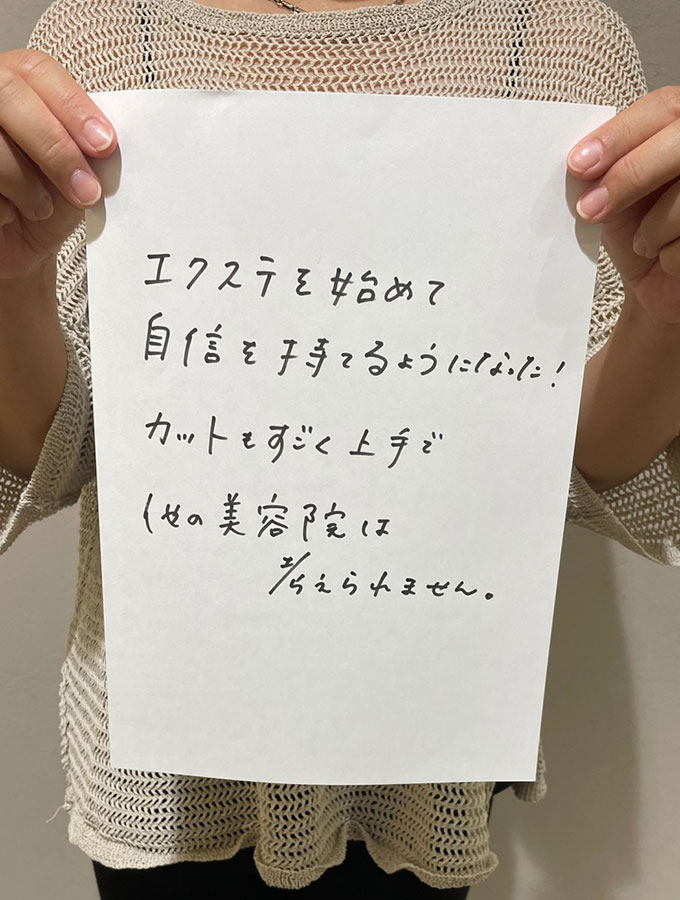 エクステを始めて
自信を持てるようになった!
カットもすごく上手で
他の美容院は
考えられません。